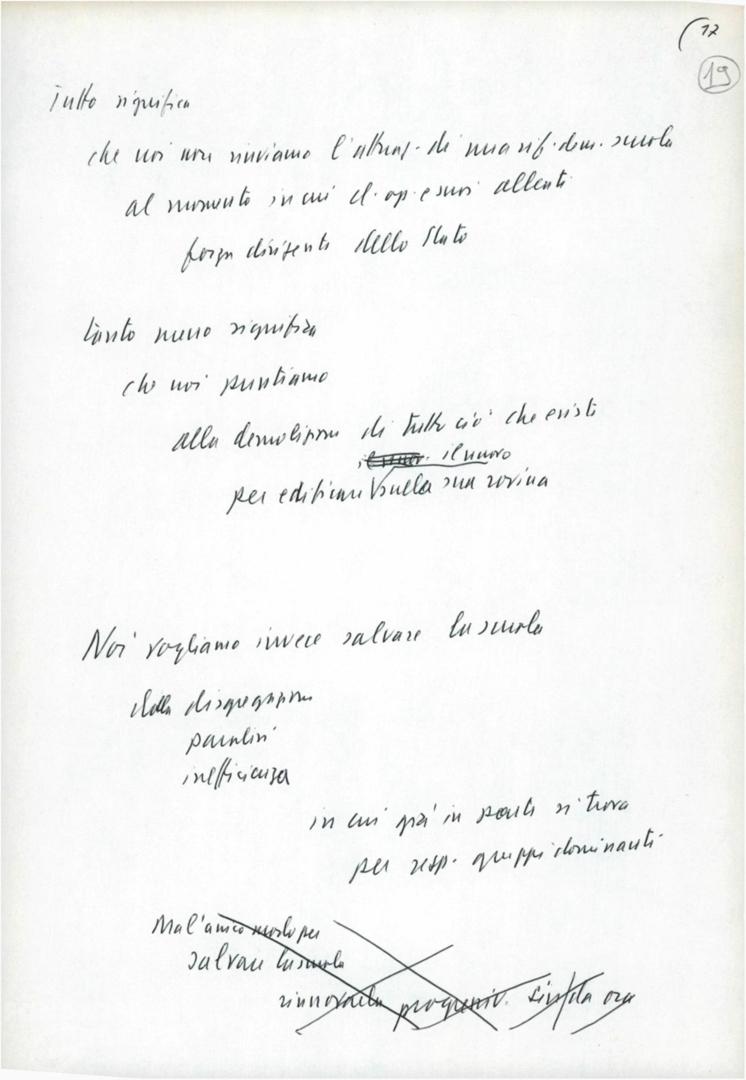 (17
19
Tutto significa
che noi non rinviamo l'attuaz. di una rif. dem. scuola
al momento in cui cl. op. e suoi alleati
forza dirigente dello Stato
tanto meno significa
che noi puntiamo
alla demolizione di tutto ciò che esiste
il nuovo
per edificare sulla sua rovina
Noi vogliamo invece salvare la scuola
dalla disgregazione
paralisi
inefficienza
in cui già in parte si trova
per resp. gruppi dominanti
Ma l'unico modo per
salvare la scuola
rinnovarla progressiv. sin da ora